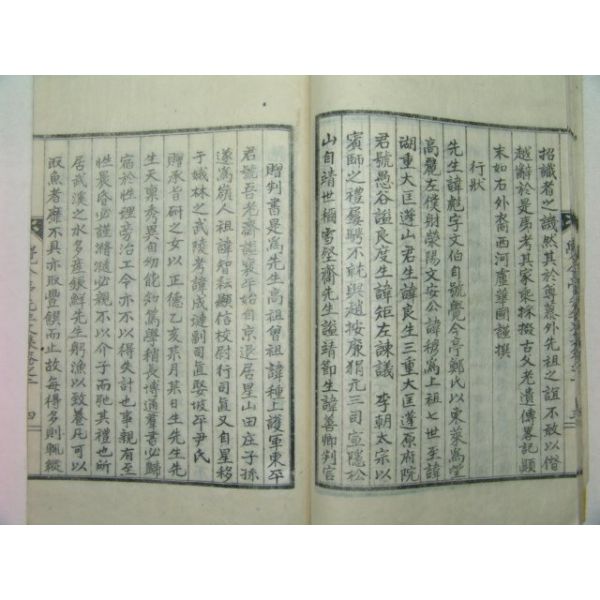 招識者之譏然其於尊慕外先祖之誼不敢以僭
越辭於是考其家乘採掇古父老遺傳畧記顚
末如右外裔西河盧華國謹撰
行狀
先生諱彪字文伯自號覺今亭鄭氏以東萊爲望
高麗左僕射滎陽文安公諱穆爲上祖七世至諱
湖重大匡蓬山君生諱良生三重大匡蓬原府院
君號愚谷謚良度生諱矩左諫議 李朝太宗以
賓師之禮屢聘不就與趙按廉狷元三司宣隱松
山自靖世稱雪壑齋先生謚靖節生諱善卿判官
贈判書是爲先生高祖曾祖諱種上護軍東平
君號吾老齋謚襄平始自京退居星山田庄子孫
遂爲嶺人祖諱智耘顯信校尉行司直又自星移
于娥林之武陵考諱成璉副司直娶坡平尹氏
贈承旨尉之女以 正德乙亥某月某日生先生先
生天稟秀異自幼能知爲學稍長博通羣書必歸
宿於性理旁治工令亦不以得失計也事親有至
性晨昏必謹滫瀡必親不以介于而弛其禮也所
居武溪之水多産銀鮮先生躬漁以致養凡可以
取魚者靡不具亦取豊饌而止故每得多則輒縱
覺今亭先生文集卷之一 四